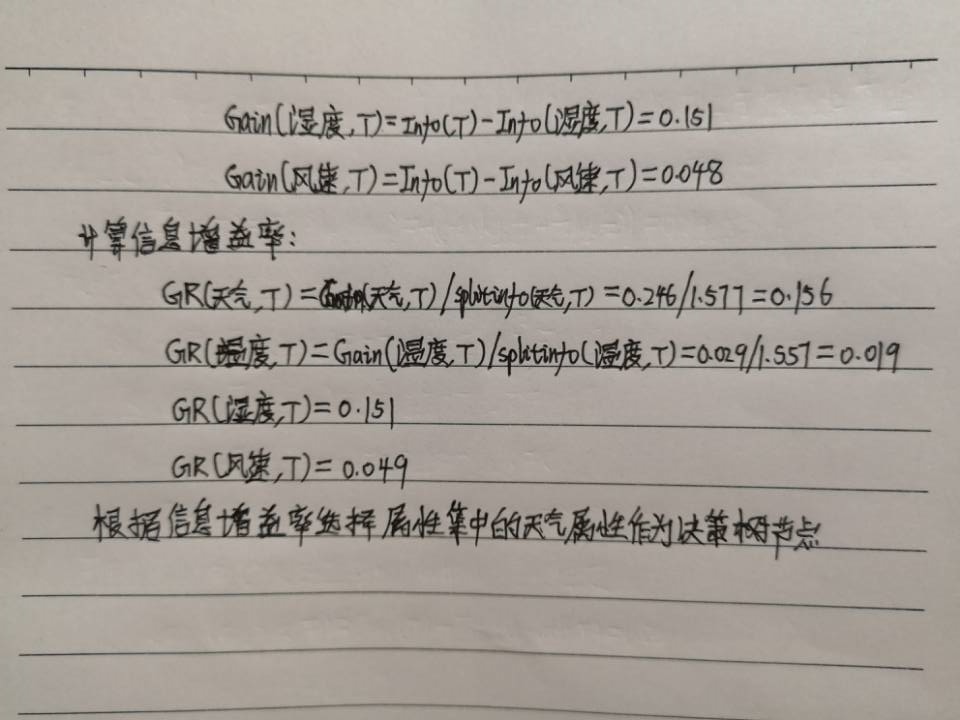 Gain(湿度,T)=Info(T)-Info(湿度,T)=0.151
Gain(风速,T)=Info(T)-Info(风速,T)=0.048
计算信息增益率:
GR(天气,T)=(天气,T)/splitinfo(天气,T)=0.246/1.577=0.156
GR(温度,T)=Gain(温度,T)/splitinfo(温度,T)=0.029/1.557=0.019
GR(湿度,T)=0.151
GR(风速,T)=0.049
根据信息增益率选择属性集中的天气属性作为决策树节点